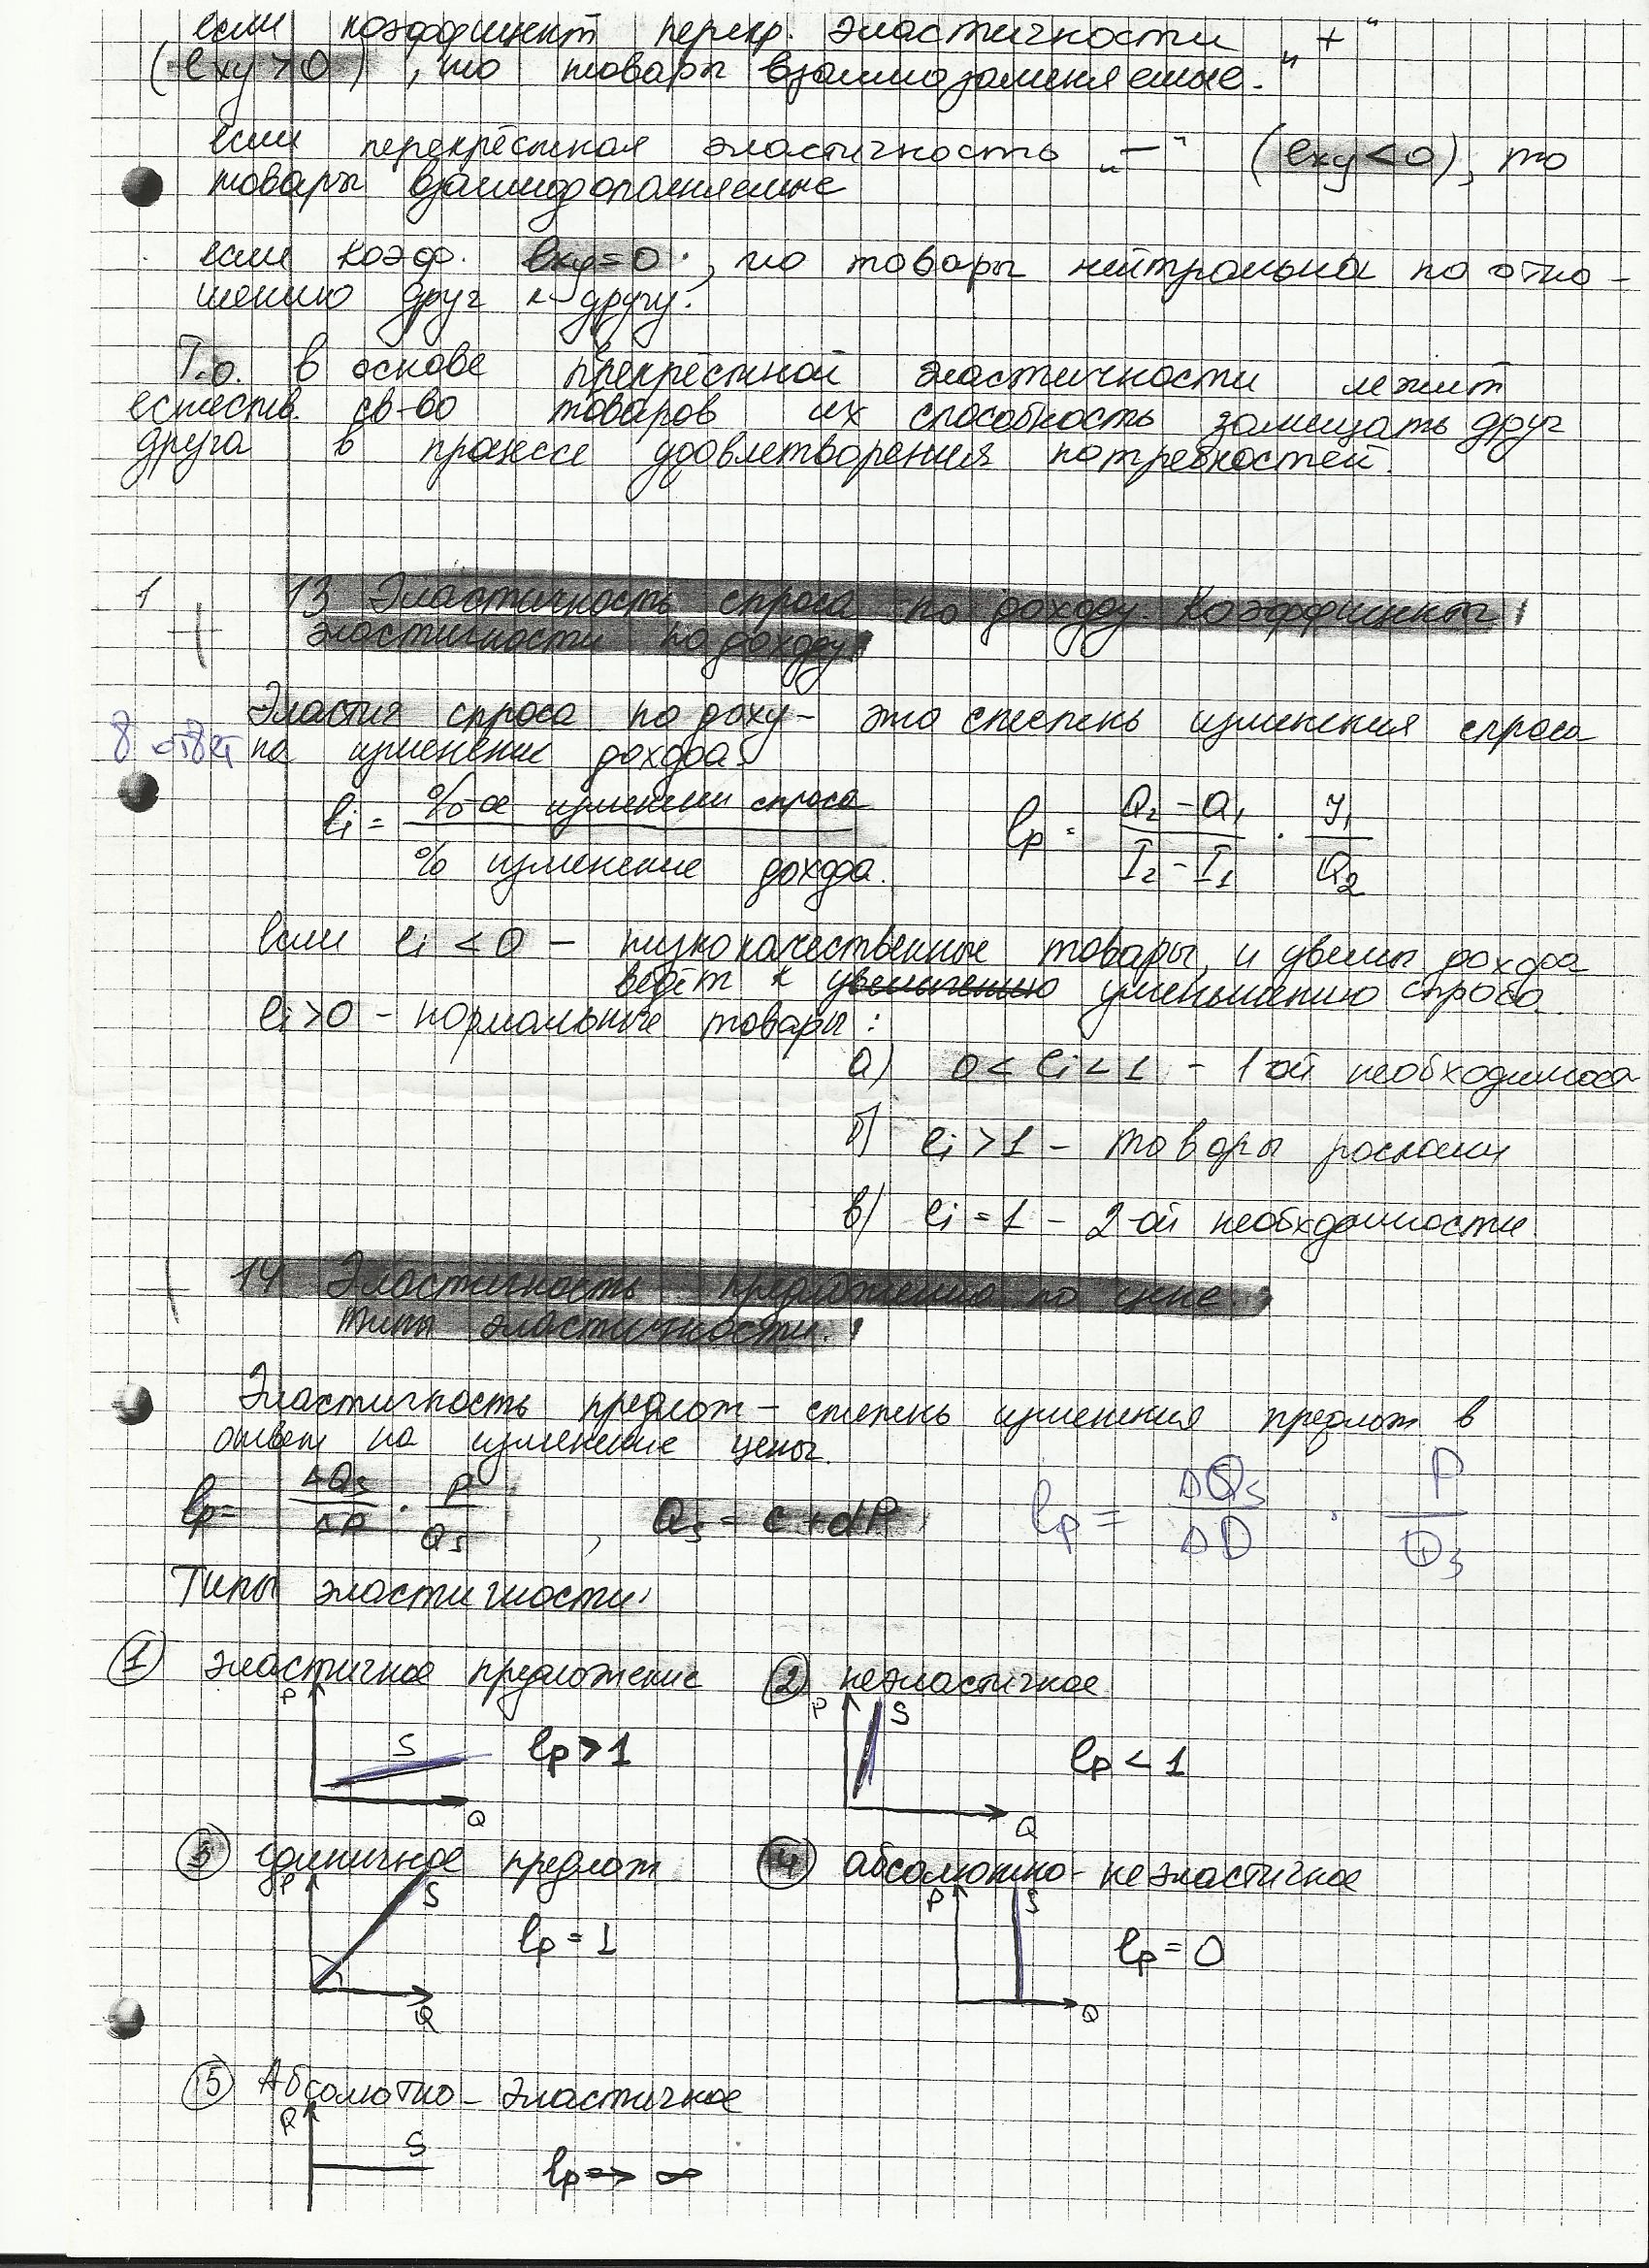 если коэффициент перекр. эластичности „+“
(exy>0), то товары взаимозаменяемые.
если перекрёстная эластичность „−“ (exy<0), то
товары взаимодополняемые
если коэф. exy=0, то товары нейтральна по отно-
шению друг к другу.
Т.о. в основе прекрёстной эластичности лежит
естеств. св-во товаров их способность замещать друг
друга в процессе удовлетворения потребностей.
1
+ 13 Эластичность спроса по доходу. Коэффициенты
эластичности по доходу
Эластия спроса по доху – это степень изменения спроса
8 ответ на изменение дохода.
ei = %-ое изменении спроса / % изменение дохода.
ep = Q2 − Q1 / I2 − I1 · Y1 / Q2
если ei < 0 – низкокачественные товары, и увелич дохода
ведёт к увеличению уменьшению спроса.
ei>0 – нормальные товары:
а) 0 < ei < 1 – 1 ой необходимости
б) ei > 1 – товары роскоши
в) ei = 1 – 2-ой необхдомности
+ 14 Эластичность предложению по цене.
Типы эластичности.
Эластичность предлож – степень изменения предлож в
ответ на изменение цены.
ep= ΔQs / ΔP · P / Qs , Qs = c + dP
ep = ΔQs / ΔD · P / Qs
Типы эластичности:
① эластичное предложение
P S Q ep>1
② неэластичное
P S Q ep < 1
③ единичное предлож
P S Q ep = 1
④ абсолютно-неэластичное
P S Q ep = 0
⑤ Абсолютно-эластичное
P S ep => ∞